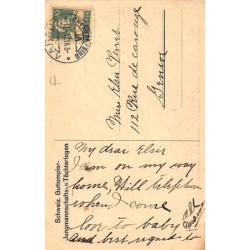 Miss Elsie Perret
112 Rue de Carouge
Geneva
Schweiz. Guttempler-
Jungmannschafts- u. Töchterlogen
My dear Elsie
I am on my way
home, Will telephon
when I come
love to baby
and best regards to